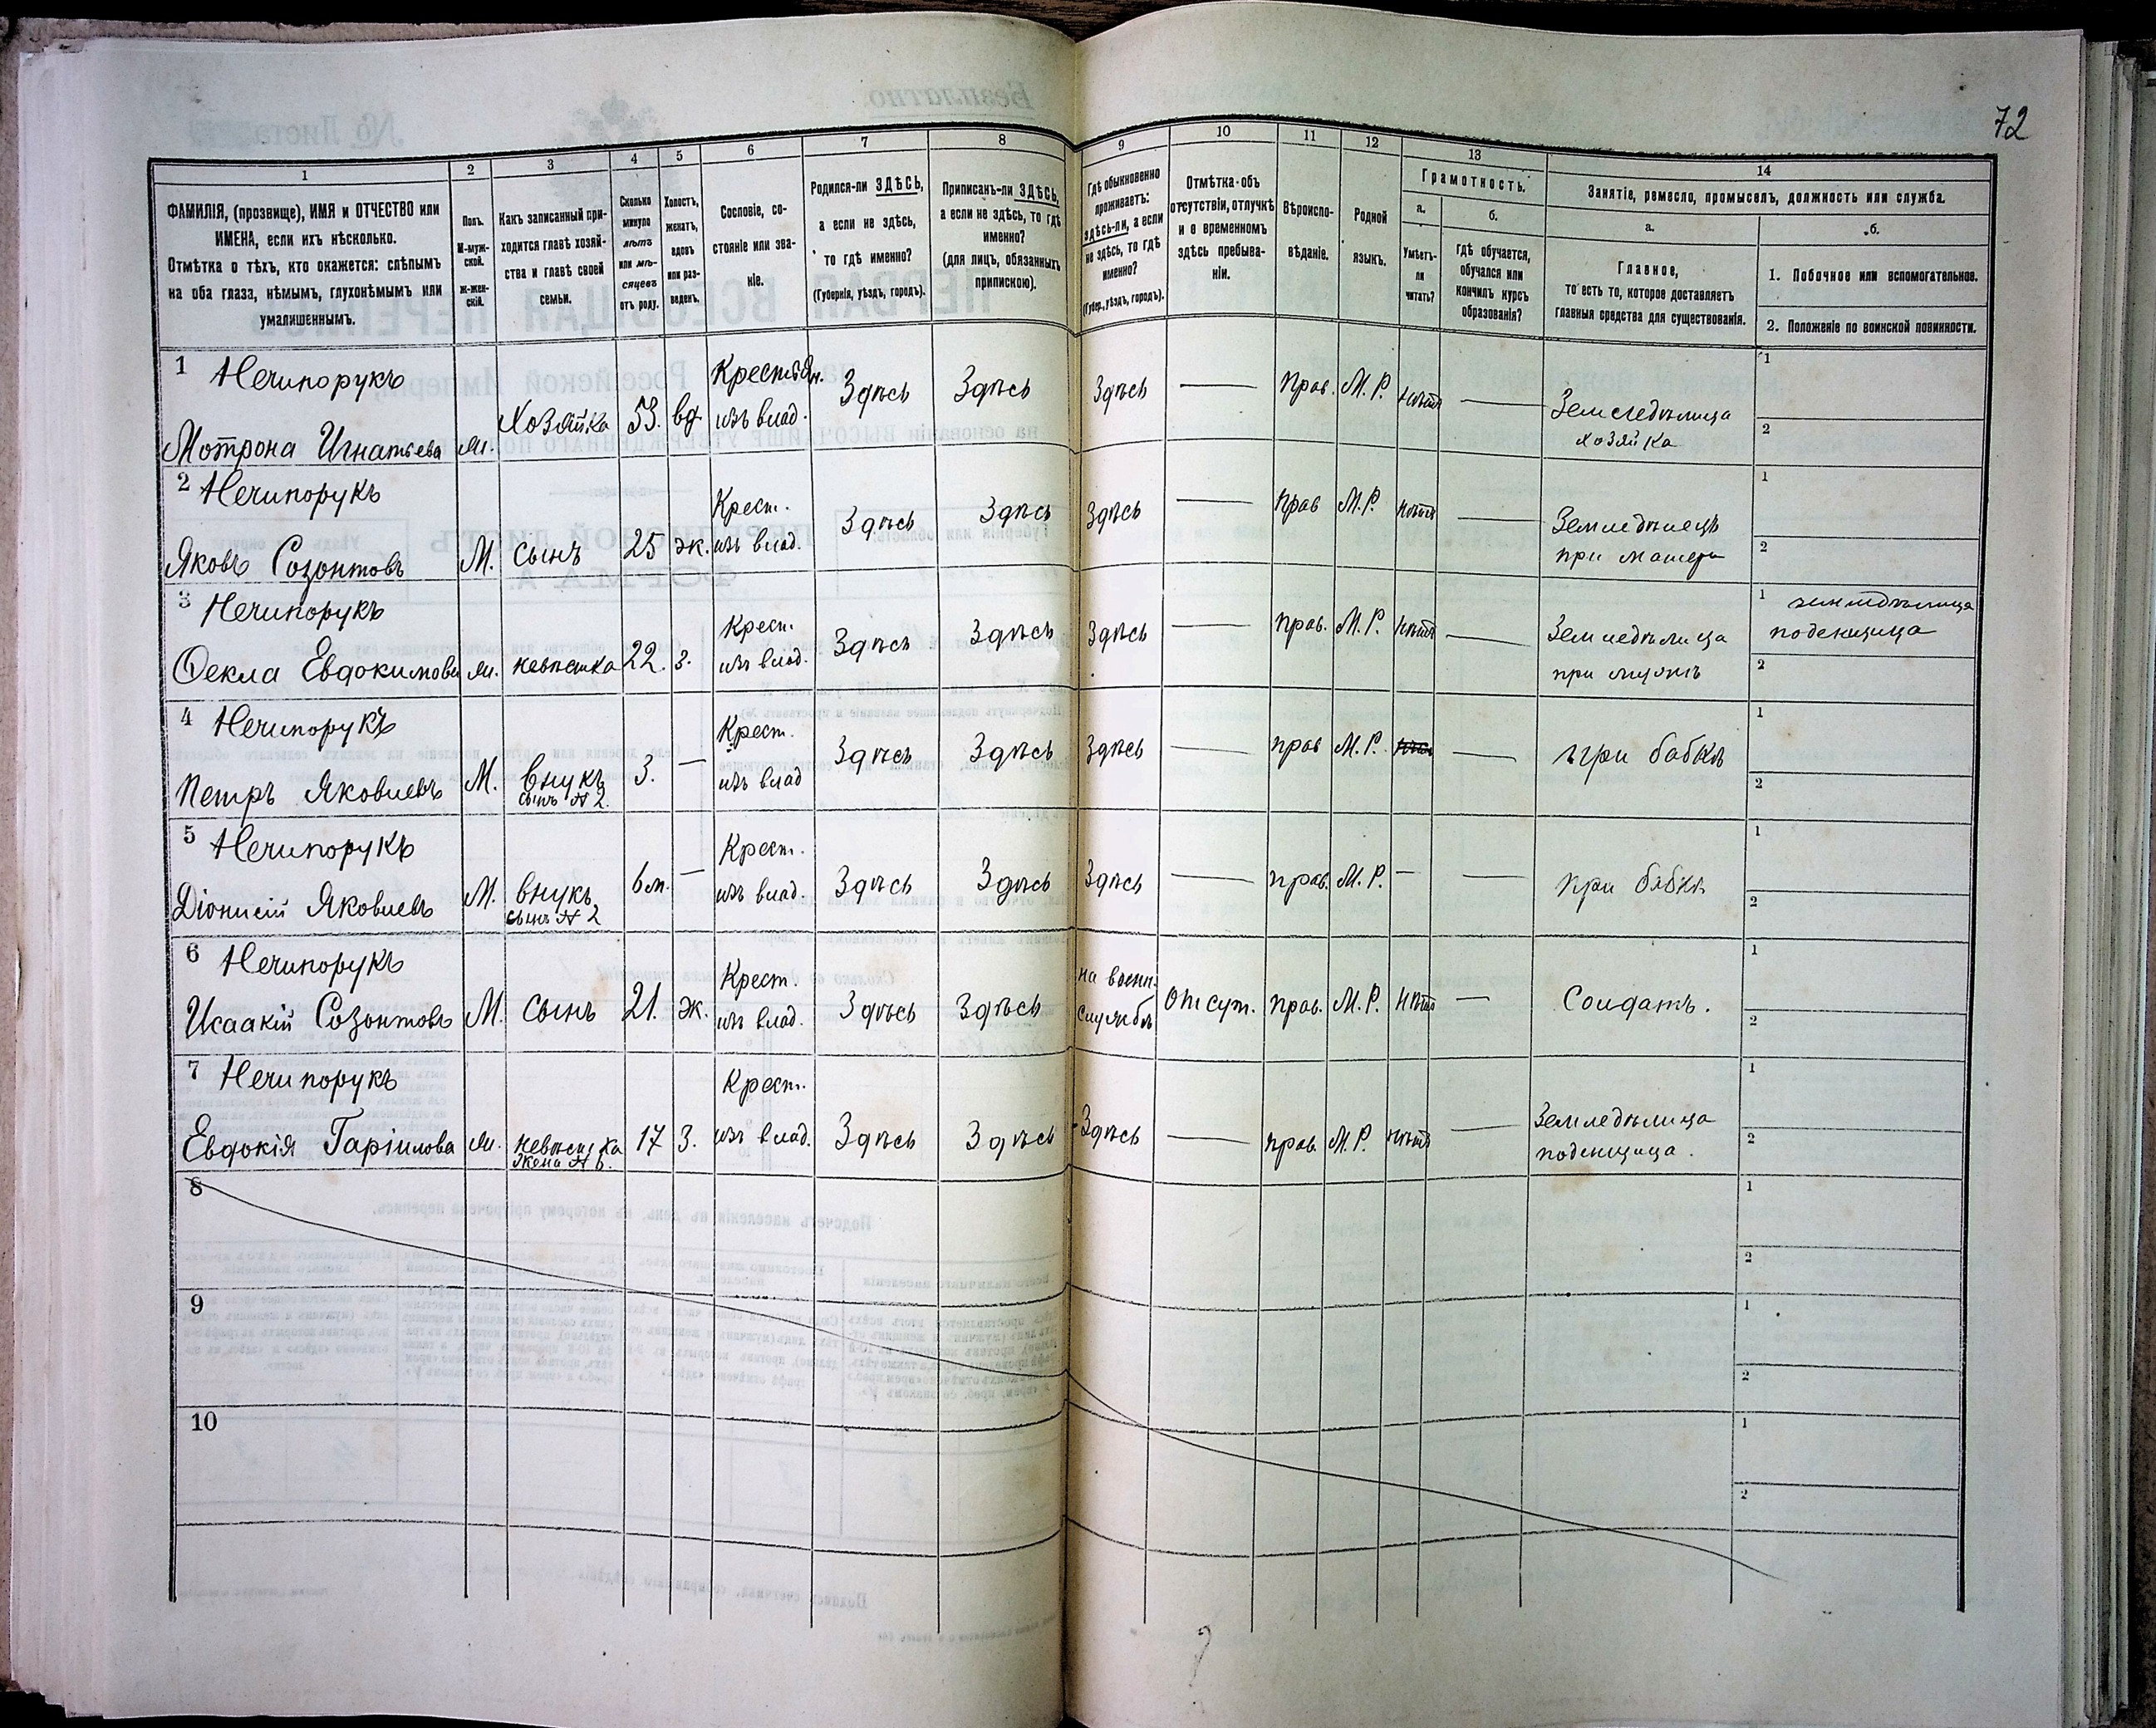 72
1
2
3
4
5
6
7
8
9
10
11
12
13
14
ФАМИЛІЯ, (прозвище), ИМЯ и ОТЧЕСТВО или
ИМЕНА, если ихъ нѣсколько.
Отмѣтка о тѣхъ, кто окажется: слѣпымъ
на оба глаза, нѣмымъ, глухонѣмымъ или
умалишеннымъ.
Полъ.
М-муж-
ской.
Ж-жен-
скій.
Какъ записанный при-
ходится главѣ хозяй-
ства и главѣ своей
семьи.
Сколько
минуло
лѣтъ
или мѣ-
сяцевъ
отъ роду.
Холостъ,
женатъ,
вдовъ
или раз-
веденъ.
Сословіе, со-
стояніе или зва-
ніе.
Родился-ли ЗДѢСЬ,
а если не здѣсь,
то гдѣ именно?
(Губернія, уѣздъ, городъ).
Приписанъ-ли ЗДѢСЬ,
а если не здѣсь, то гдѣ
именно?
(для лицъ, обязанныхъ
припискою).
Гдѣ обыкновенно
проживаетъ:
здѣсь-ли, а если
не здѣсь, то гдѣ
именно?
(Губер., уѣздъ, городъ).
Отмѣтка объ
отсутствіи, отлучкѣ
и о временномъ
здѣсь пребыва-
ніи.
Вѣроиспо-
вѣданіе.
Родной
языкъ.
Грамотность.
а.
Умѣетъ-
ли
читать?
б.
Гдѣ обучается,
обучался или
кончилъ курсъ
образованія?
Занятіе, ремесло, промыселъ, должность или служба.
а.
Главное,
то есть то, которое доставляетъ
главныя средства для существованія.
б.
1. Побочное или вспомогательное.
2. Положеніе по воинской повинности.
1 Нечипорукъ
Мотрона Игнатьева
Хозяйка 53. вд.
Крестьян.
изъ влад.
Здѣсь Здѣсь Здѣсь — Прав. М.Р. нѣтъ —
Земледѣлица
хозяйка
1
2
2 Нечипорукъ
Яковъ Созонтовъ М. сынъ 25 ж.
Крест.
изъ влад.
Здѣсь Здѣсь Здѣсь — Прав М.Р. нѣтъ —
Земледѣлецъ
при матери
1
2
3 Нечипорукъ
Ѳекла Евдокимова невѣстка 22. з.
Крест.
изъ влад.
Здѣсь Здѣсь Здѣсь — прав. М.Р. нѣтъ —
Земледѣлица
при мужѣ
1 земледѣлица
поденщица
2
4 Нечипорукъ
Петръ Яковлевъ М. внукъ
сынъ № 2.
3. —
Крест.
изъ влад
Здѣсь Здѣсь Здѣсь — прав М.Р. —
при бабкѣ
1
2
5 Нечипорукъ
Діонисій Яковлевъ М. внукъ
сынъ № 2
6 м. —
Крест.
изъ влад.
Здѣсь Здѣсь Здѣсь — прав. М.Р. — —
при бабкѣ
1
2
6 Нечипорукъ
Исаакій Созонтовъ М. сынъ 21. ж.
Крест.
изъ влад.
Здѣсь Здѣсь
на военн.
службѣ
Отсут. прав. М.Р. нѣтъ —
Солдатъ.
1
2
7 Нечипорукъ
Евдокія невѣстка
жена № 6.
17 З.
Крест.
изъ влад.
Здѣсь Здѣсь Здѣсь — прав. М.Р. нѣтъ —
Земледѣлица
поденщица.
1
2
8
1
2
9
1
2
10
1
2